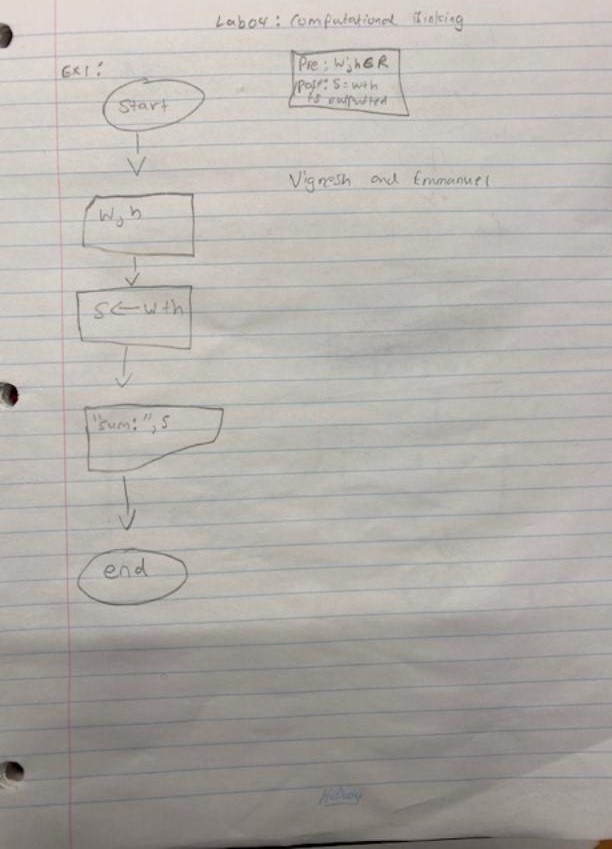 Lab04: Computational Thinking
Ex1:
Pre: w,h∈R
post: S=w+h
is outputted
Start
Vignesh and Emmanuel
w,h
S←w+h
"sum:",S
end
Hilroy